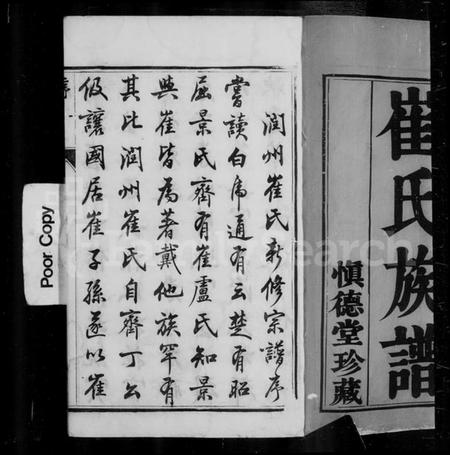 崔氏族譜
慎德堂珍藏
潤州崔氏新修宗譜序
嘗讀白虎通有云楚有昭
屈景氏齊有崔盧氏知景
與崔皆為著戴他族罕有
其比潤州崔氏自齊丁公
伋讓國居崔子孫遂以崔
序
一
Poor Copy
FamilySearch